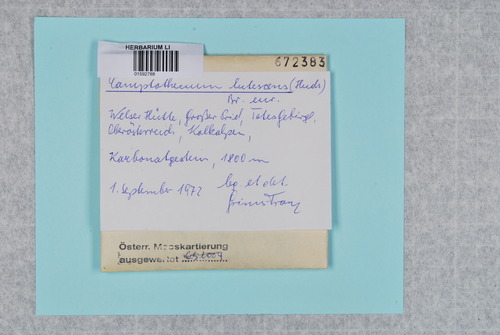 HERBARIUM LI
01592768
672383
Camptothecium lutescens (Huds)
Br. eur.
Welser Hütte, Großer Priel, Totes Gebirge,
Oberösterreich, Kalkalpen,
Karbonatgestein, 1800 m
1. September 1972 leg. et det.
Grims Franz
Österr. Mooskartierung
ausgewertet 2004